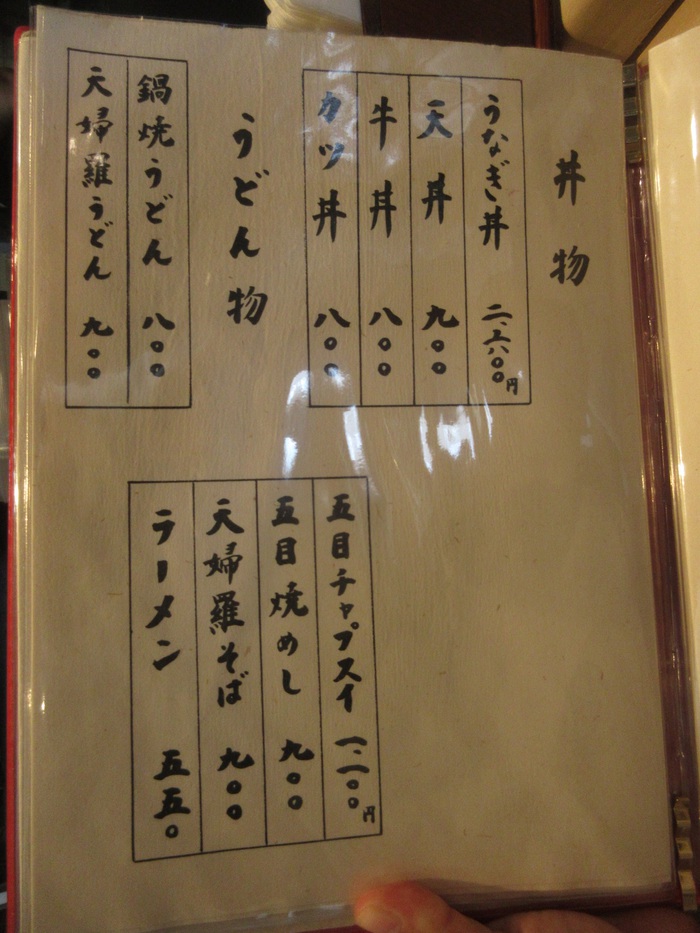 丼物
うなぎ丼 二、六〇〇円
天丼 九〇〇
牛丼 八〇〇
カツ丼 八〇〇
うどん物
鍋焼うどん 八〇〇
天婦羅うどん 九〇〇
五目チャプスイ 一、二〇〇円
五目焼めし 九〇〇
天婦羅そば 九〇〇
ラーメン 五五〇